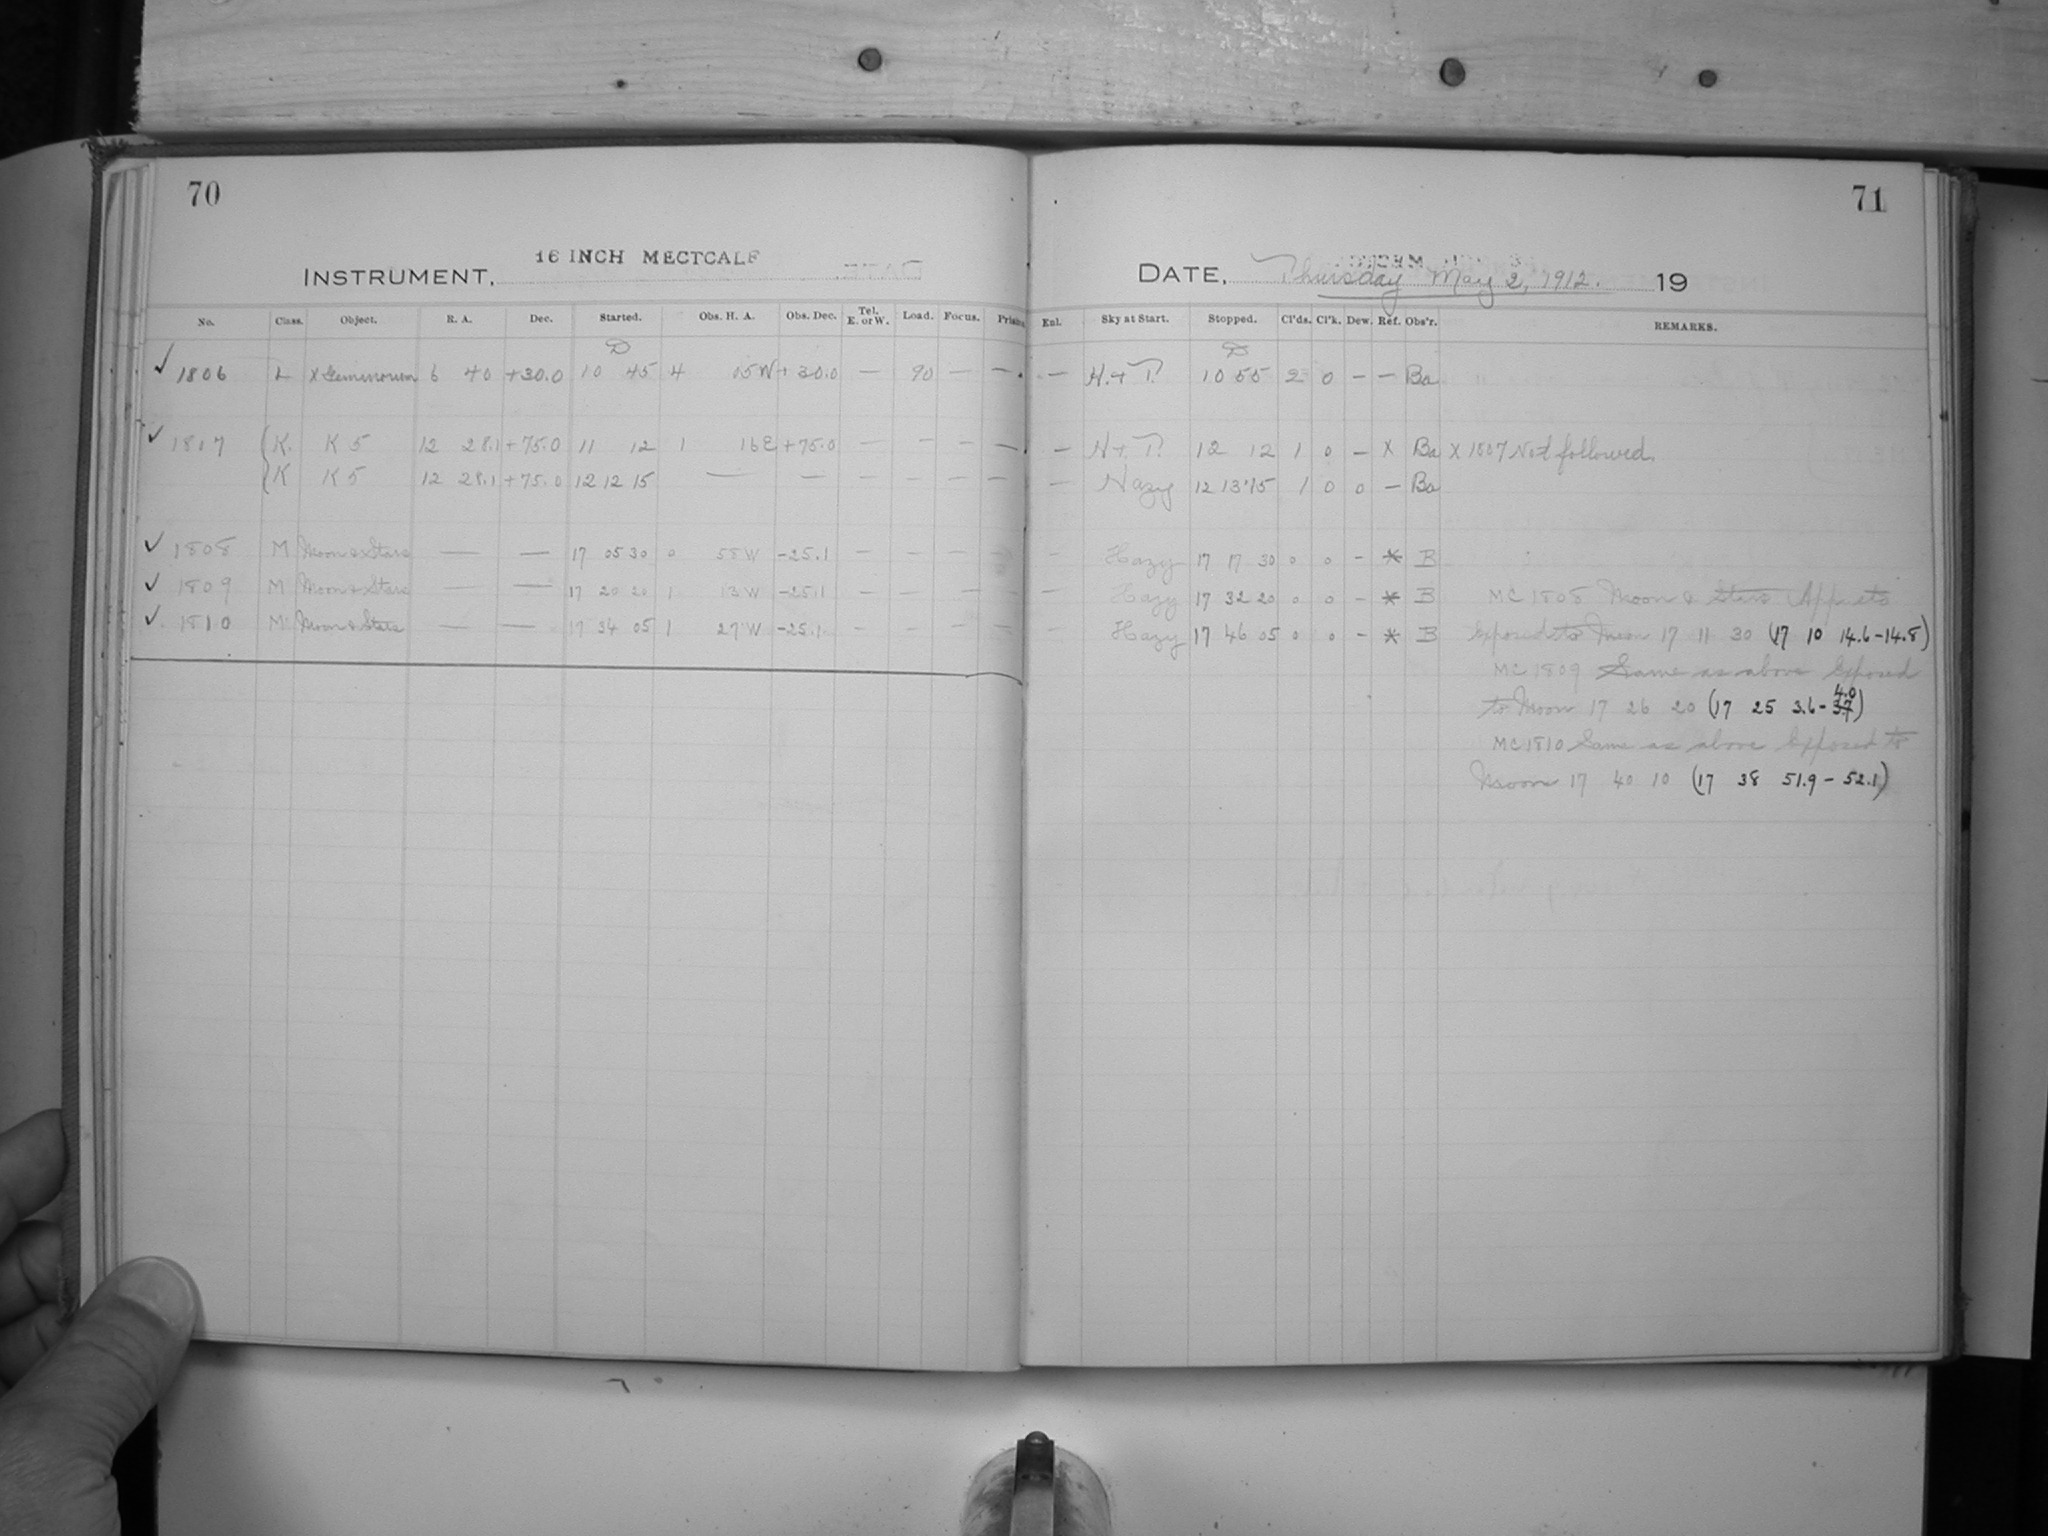 70
16 INCH MECTCALF
INSTRUMENT,
No. Class. Object. R. A. Dec. Started. Obs. H. A. Obs. Dec. Tel. E. or W. Load. Focus. Prisms
D
✓ 1806 L X Geminorum 6 40 +30.0 10 45 4 05 W +30.0 — 90 — —
✓ 1817 K. K 5 12 28.1 +75.0 11 12 1 16 E +75.0 — — — —
K K 5 12 28.1 +75.0 12 12 15 — — — — — —
✓ 1808 M Moon & Stars — — 17 05 30 0 58 W -25.1 — — —
✓ 1809 M Moon & Stars — — 17 20 20 1 13 W -25.1 — — — —
✓ 1810 M Moon & Stars — — 17 34 05 1 27 W -25.1 — — — —
71
DATE, Thursday May 2, 1912. 19
Enl. Sky at Start. Stopped. Cl'ds. Cl'k. Dew. Ref. Obs'r. REMARKS.
D
— H. & T. 10 55 2 0 — — Ba
— H & T. 12 12 1 0 — X Ba X 1807 Not followed.
— Hazy 12 13 15 1 0 0 — Ba
— Hazy 17 17 30 0 0 — * B
— Hazy 17 32 20 0 0 — * B MC 1808 Moon & Stars
— Hazy 17 46 05 0 0 — * B Exposed to Moon 17 11 30 (17 10 14.6-14.8)
MC 1809 Same as above Exposed
to Moon 17 26 20 (17 25 3.6-3.7 4.0)
MC 1810 Same as above Exposed to
Moon 17 40 10 (17 38 51.9-52.1)